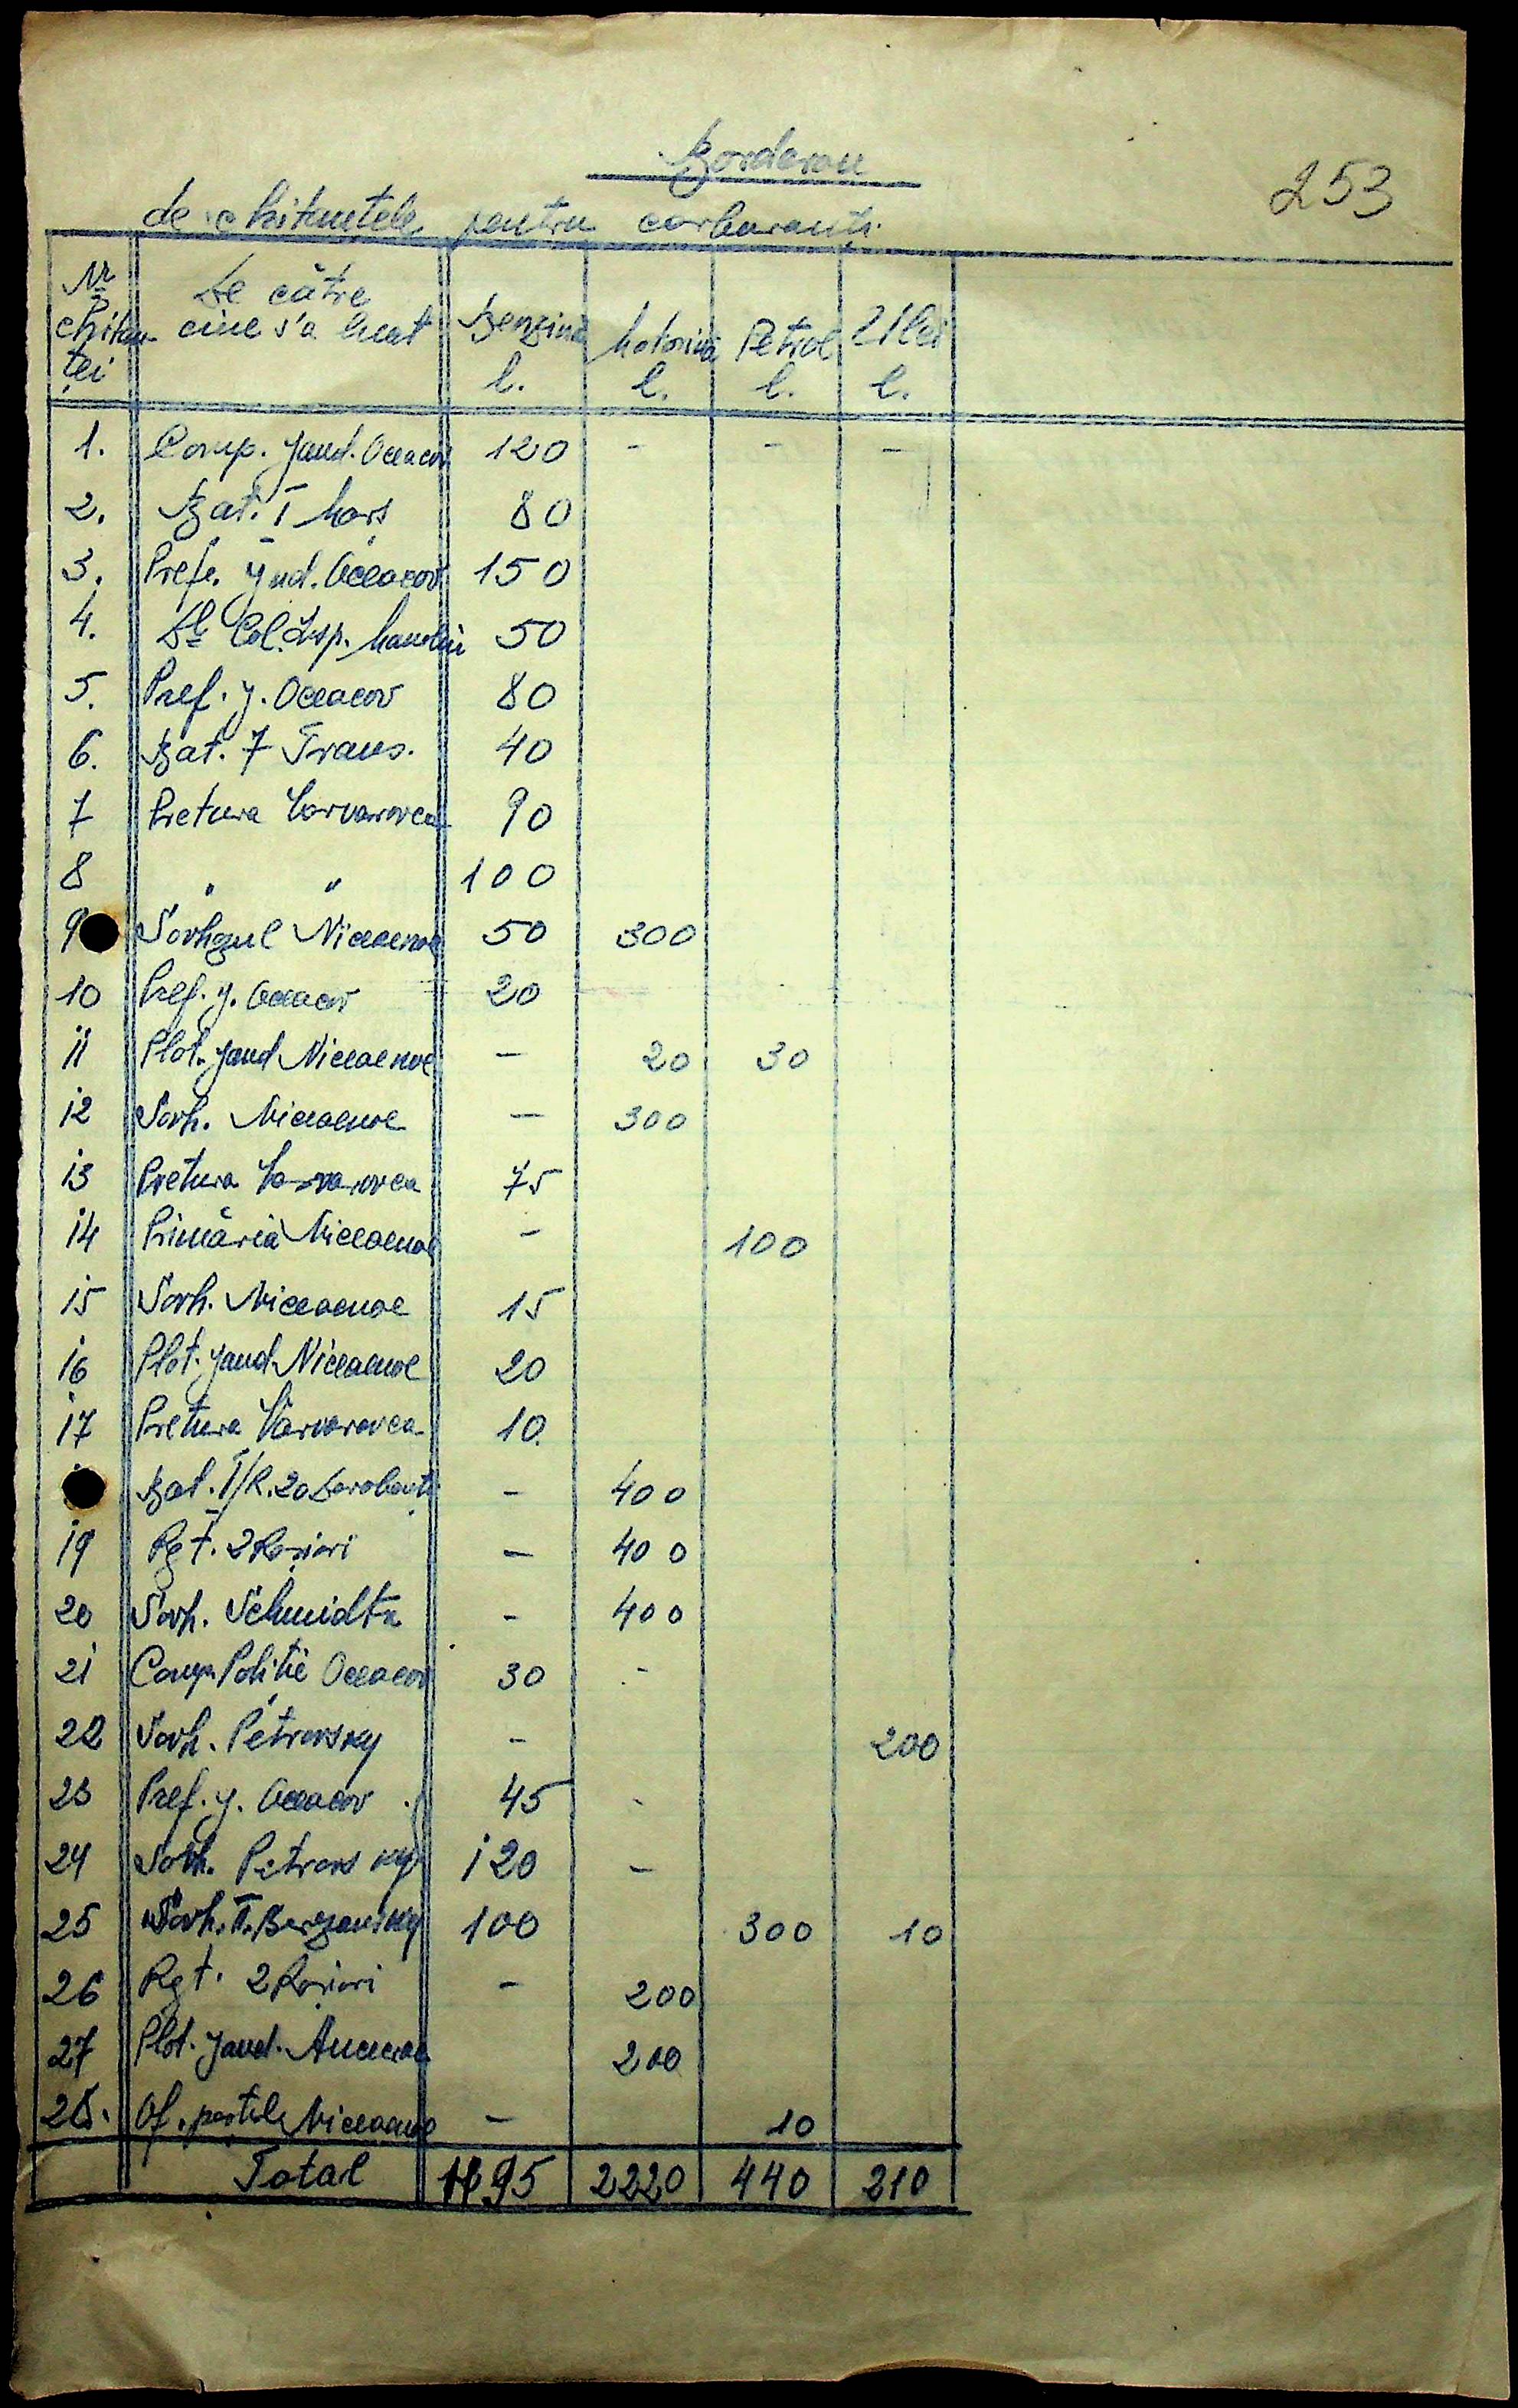 Borderou
253
de chitanțele pentru carburanți
Nr chitanței | De către cine s'a luat | Benzină l. | Motorină l. | Petrol l. | Ulei l.
1. Comp. Jand. Oceacov 120 - - -
2. Bat. I Marș 80
3. Pref. Jud. Oceacov 150
4. Dl Col. Insp. 50
5. Pref. J. Oceacov 80
6. Bat. 7 Trans. 40
7 Pretura Varvarovca 90
8 " " 100
9 Sovhozul Nicolaevca 50 300
10 Pref. J. Oceacov 20
11 Plot. Jand Nicolaevca - 20 30
12 Sovh. Nicolaevca - 300
13 Pretura Varvarovca 75
14 Primăria Nicolaevca - 100
15 Sovh. Nicolaevca 15
16 Plot. Jand. Nicolaevca 20
17 Pretura Varvarovca 10.
Bat. I/R. 20 Dorobanți - 400
19 Rgt. 2 Roșiori - 400
20 Sovh. Schmidta - 400
21 Comp. Poliție Oceacov 30 -
22 Sovh. Petrovsky - 200
23 Pref. J. Oceacov 45 -
24 Sovh. Petrovsky 120 -
25 Sovh. T. Berezansky 100 300 10
26 Rgt. 2 Roșiori - 200
27 Plot. Jand. 200
28. Of. poștal Nicolaevca - 10
Total 1195 2220 440 210